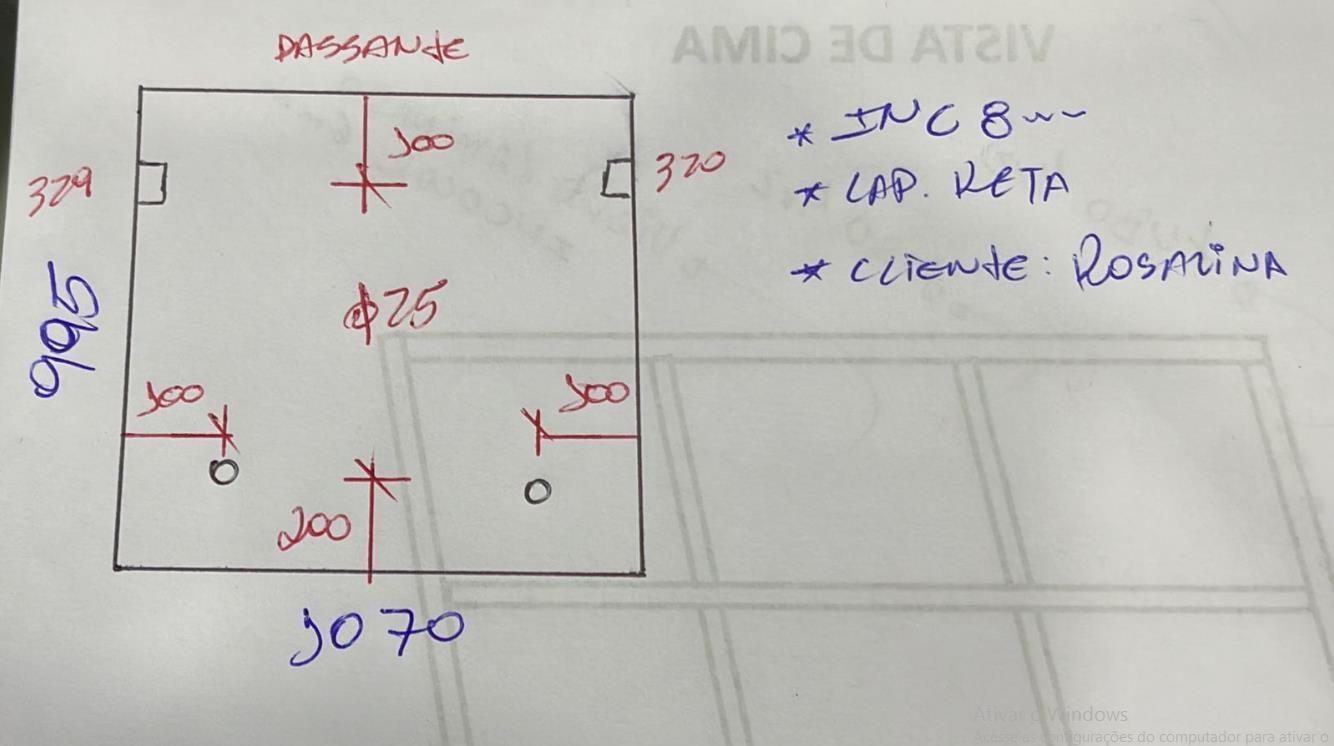 PASSANTE
VISTA DE CIMA
* INC 8mm
100
329
320
* LAP. RETA
* CLIENTE: ROSALINA
995
φ25
100
100
200
1070
Ativar o Windows
Acesse as configurações do computador para ativar o